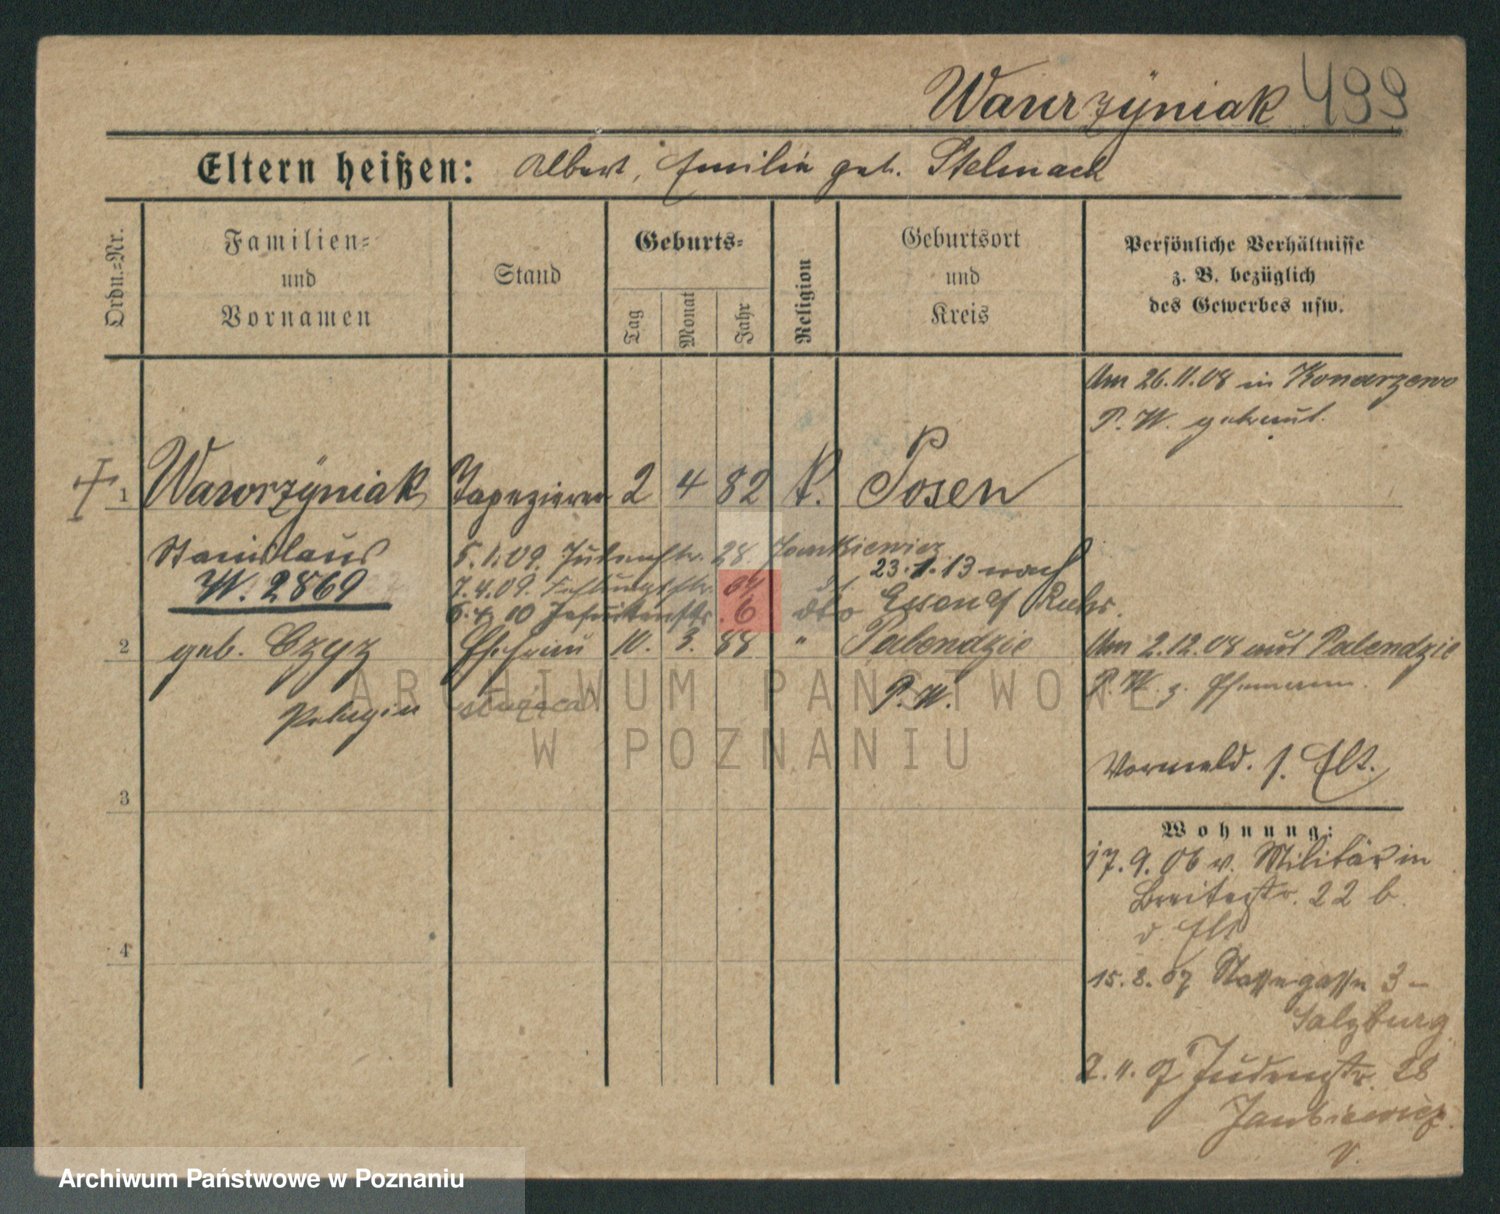 Wawrzyniak 499
Eltern heißen: Albert, Emilie geb. Stelmach
Ordn.-Nr.
Familien-
und
Vornamen
Stand
Geburts-
Tag
Monat
Jahr
Religion
Geburtsort
und
Kreis
Persönliche Verhältnisse
z. B. bezüglich
des Gewerbes usw.
Am 26.11.08 in Konarzewo
P. W. getraut.
1 Wawrzyniak Tapezierer 2 4 82 k. Posen
Stanislaus
W. 2869
5.1.09. Judenstr. 28 Jankiewicz
7.4.09.
23.1.13 nach
Essen Ruhr.
dto
2 geb. Czyz Ehefrau 10. 3. 88 " Palendzie
Pelagia
P. W.
Am 2.12.08 aus Palendzie
P. W. z. Ehemann.
Vormeld. s. Elt.
3
Wohnung:
17.9.06 v. Militär in
Breitestr. 22 b
d. Elt.
4
15.2.07 3 -
Salzburg
2.11.07 Judenstr. 28
Jankiewicz
ARCHIWUM PAŃSTWOWE
W POZNANIU
Archiwum Państwowe w Poznaniu